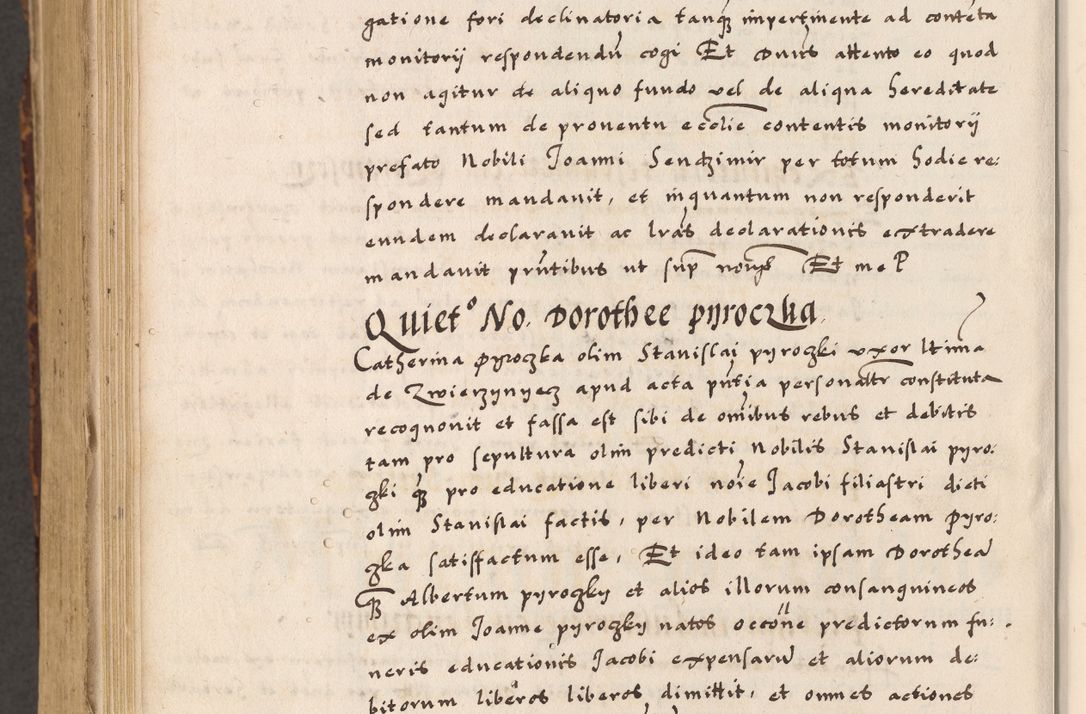 gatione fori declinatoria tanq̨ impertinente ad contēta
monitorij respondendū cogi Et Dnūs attento eo quod
non agitur de aliquo fundo vel de aliqua hereditate
sed tantum de proventu ecclīe contentis monitorij
prefato Nobili Joanni Sendzimir per totum hodie re:
spondere mandauit, et inquantum non responderit
eundem declarauit ac lrās declarationis extradere
mandauit prn̄tibus ut sup̄ Et me P
Quietº No. Dorothee pyroczka.
Catherina Pyroczka olim Stanislai pyroczki vxor ltīma
de Zwierzynyecz apud acta pn̄tia personalr̄ constituta
recognouit et fassa est sibi de omībus rebus et debitis
tam pro sepultura olim predicti Nobilis Stanislai pyro:
czki q̨ pro educatione liberi noīe Jacobi filiastri dicti
olim Stanislai factis, per Nobilem Dorotheam Pyro:
czka satisfactum esse, Et ideo tam ipsam Dorotheā
q̨ Albertum pyroczky et alios illorum consanguineos
ex olim Joanne pyroczky natos occōne predictorum fu:
neris educationis Jacobi expensarū et aliorum de:
bitorum liberos liberos dimittit, et omnes actiones